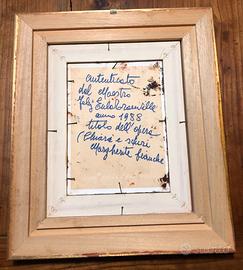 autenticato
del Maestro
anno 1988
titolo dell'opera
Chiari e scuri
Margherite bianche